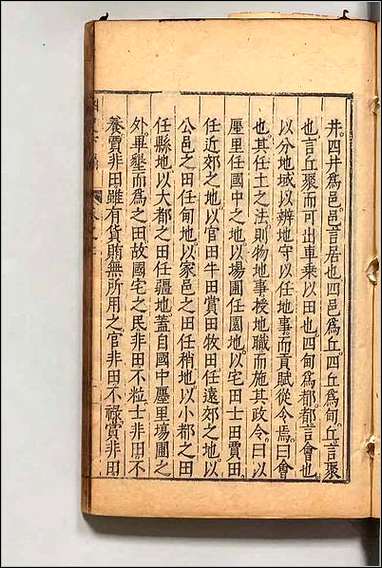 井四井爲邑邑言居也四邑爲丘四丘爲甸丘言聚
也言丘聚而可出車乘以田也四甸爲都都言會也
以分地域以辨地守以任地事而貢賦從令焉曰會
也其任土之法則物地事授地職而施其政令曰以
廛里任國中之地以場圃任園地以宅田士田賈田
任近郊之地以官田牛田賞田牧田任遠郊之地以
公邑之田任甸地以家邑之田任稍地以小都之田
任縣地以大都之田任畺地蓋自國中廛里場圃之
外畢墾而爲之田故國宅之民非田不粒士非田不
養賈非田雖有貨賄無所用之官非田不祿賞非田